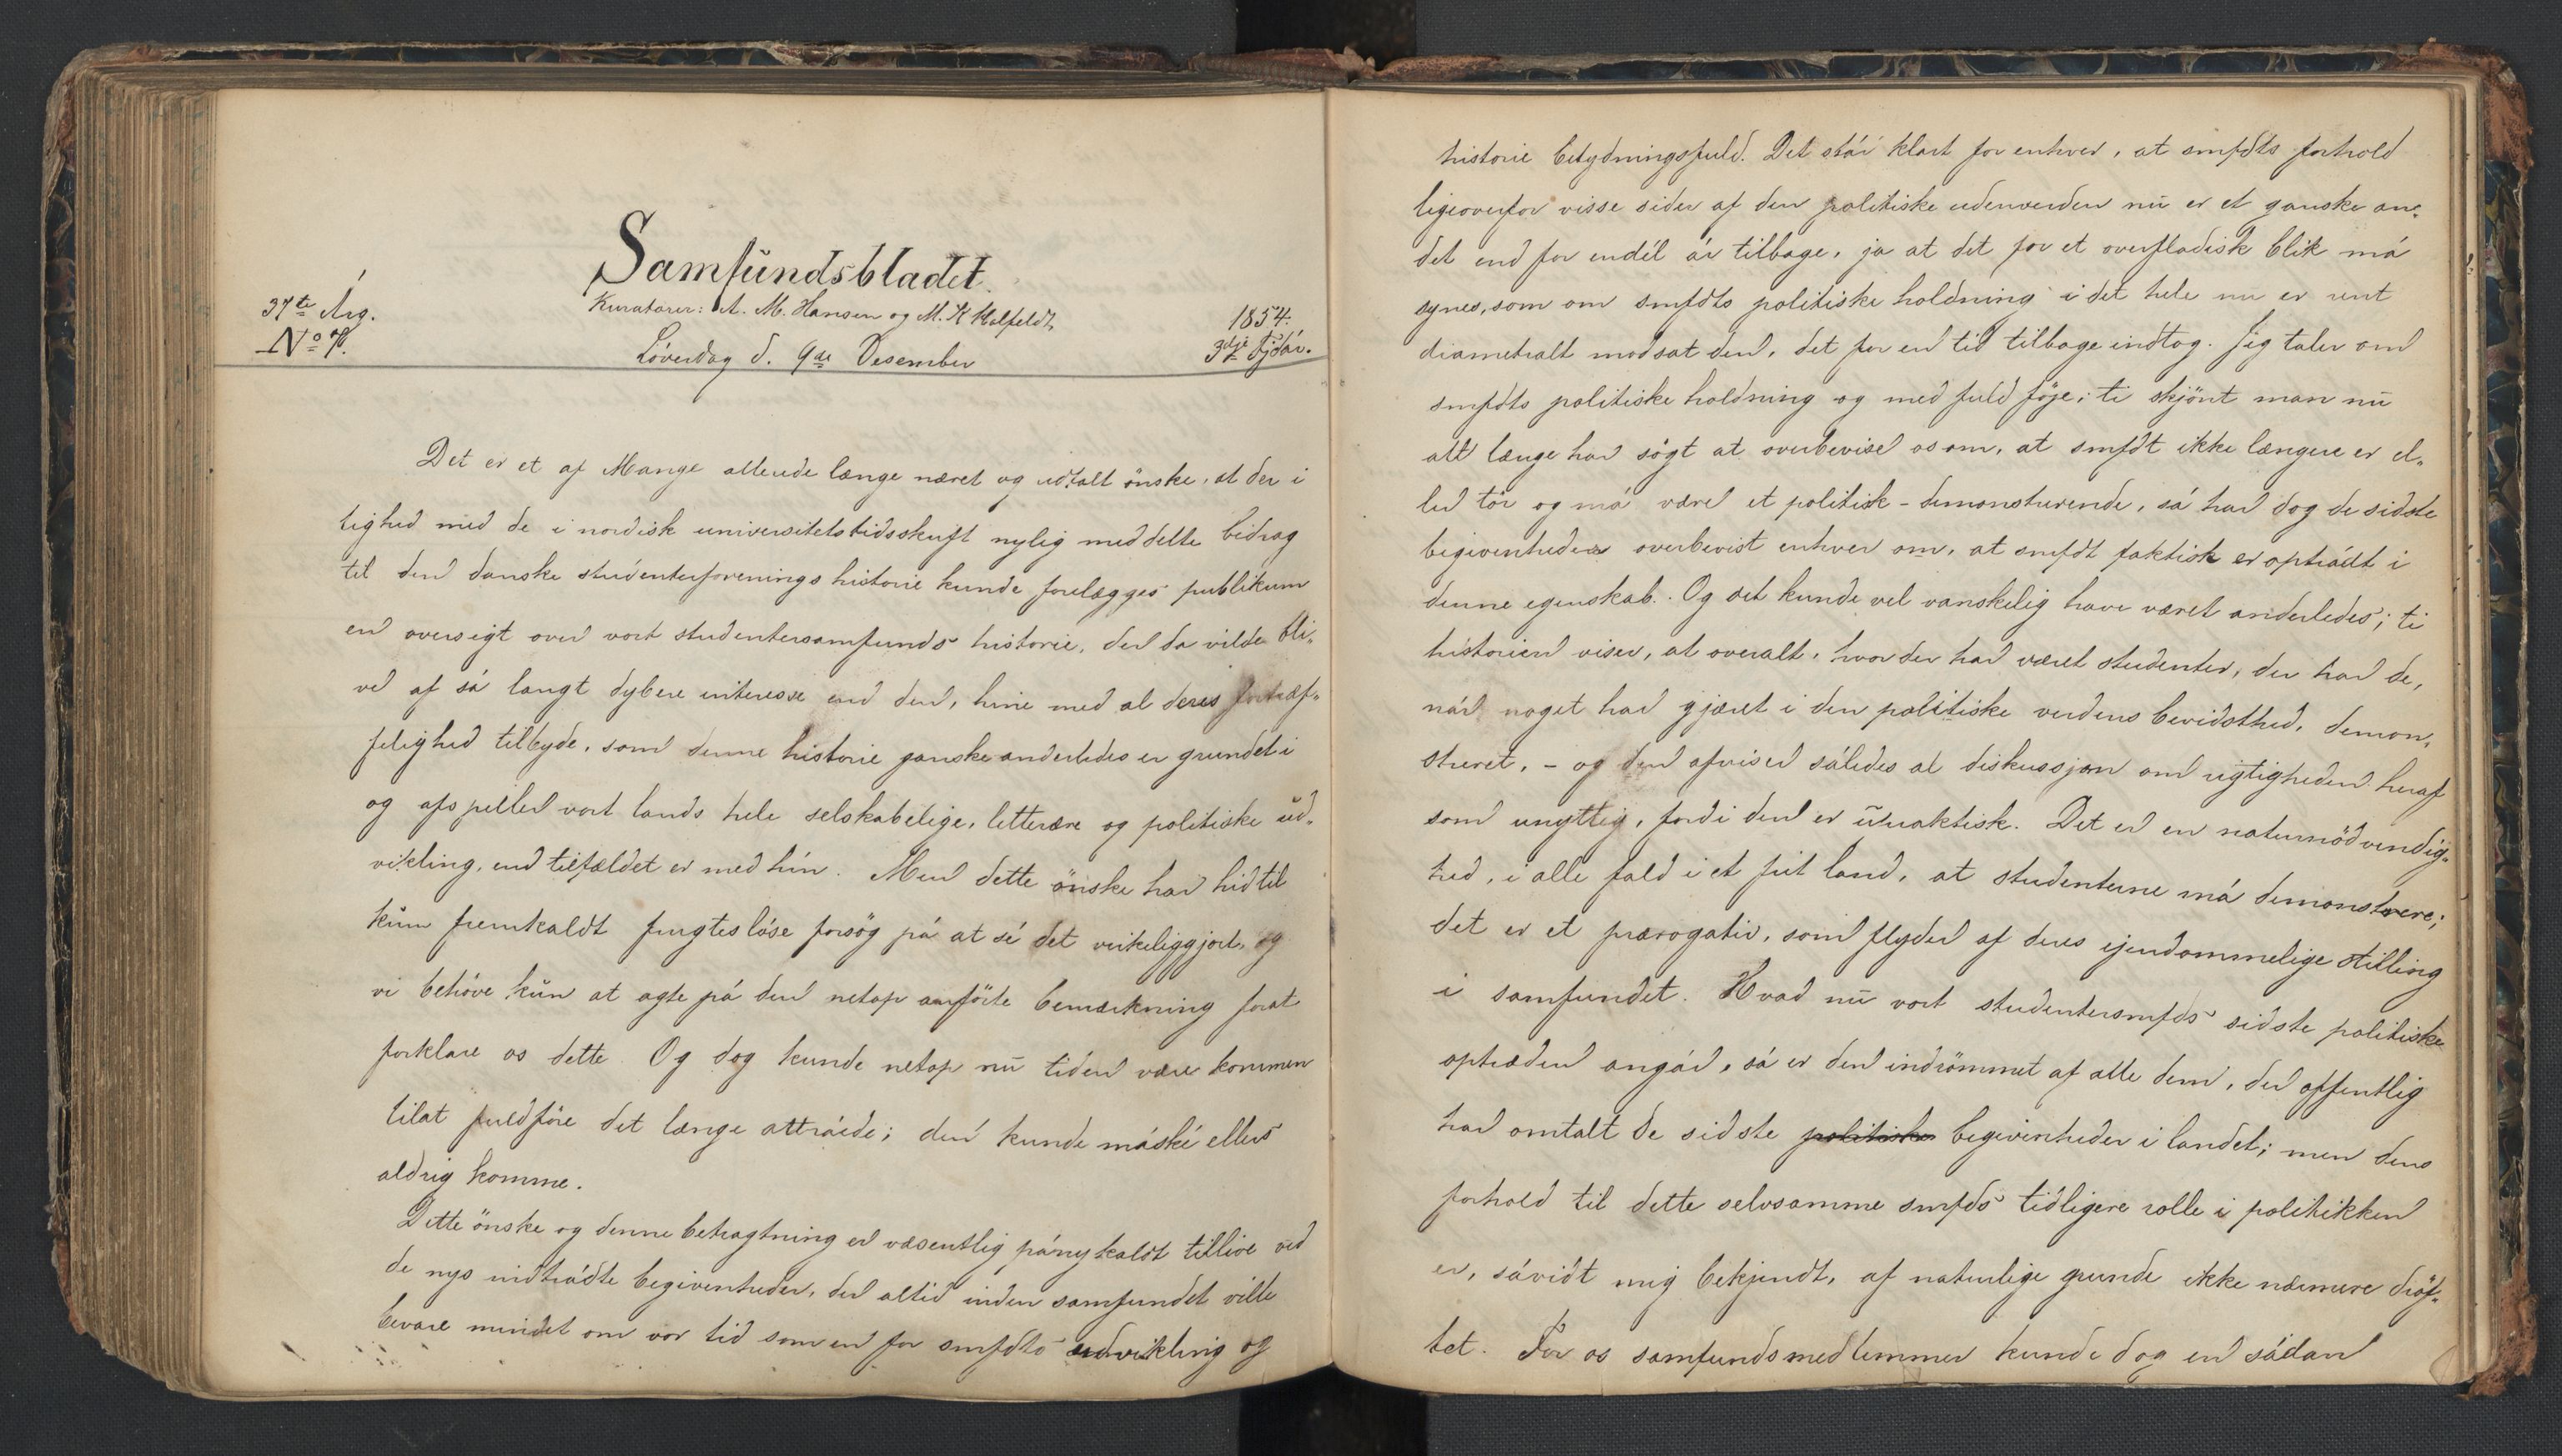 Samfundsbladet.
37te Årg.
Kuratorer: A. M. Hansen og M. K
1854.
No 7.
Löverdag d. 9de Desember
3dje Fjdår.
Det er et af Mange allerede længe næret og udtalt önske, at der i
lighed med de i nordisk universitetstidsskrift nylig meddelte bidrag
til den danske studenterforenings historie kunde forelægges publikum
en oversigt over vort studentersamfunds historie, der da vilde bli-
ve af så langt dybere interesse end den, hine med al deres fortræf-
felighed tilbyde, som denne historie ganske anderledes er grundet i
og afspeiler vort lands hele selskabelige, litterære og politiske ud-
vikling, end tilfældet er med hin. Men dette önske har hidtil
kun fremkaldt frugteslöse forsög på at sé det virkeliggjort, og
vi behöve kun at agte på den netop anförte bemærkning forat
forklare os dette. Og dog kunde netop nu tiden være kommen
tilat fuldföre det længe attråede; den kunde måské ellers
aldrig komme.
Dette önske og denne betragtning er væsentlig påny kaldt tillive ved
de nys indtrådte begivenheder, der altid inden samfundet ville
bevare mindet om vor tid som en for smfdts udvikling og
historie betydningsfuld. Det står klart for enhver, at smfdts forhold
ligeoverfor visse sider af den politiske udenverden nu er et ganske an-
det end for endel år tilbage, ja at det for et overfladisk blik må
synes, som om smfdts politiske holdning i det hele nu er rent
diametralt modsat den, det for en tid tilbage indtog. Jeg taler om
smfdts politiske holdning og med fuld föje; ti skjönt man nu
alt længe har sögt at overbevise os om, at smfdt ikke længere er el-
ler tör og må være et politisk-demonstrerende, så har dog de sidste
begivenheder overbevist enhver om, at smfdt faktisk er optrådt i
denne egenskab. Og det kunde vel vanskelig have været anderledes; ti
historien viser, at overalt, hvor der har været studenter, der har de,
når noget har gjæret i den politiske verdens bevidsthed, demon-
streret, - og den afviser således al diskussjon om rigtigheden heraf
som unyttig, fordi den er upraktisk. Det er en naturnödvendig-
hed, i alle fald i et frit land, at studenterne må demonstrere;
det er et prærogativ, som flyder af deres ejendommelige stilling
i samfundet. Hvad nu vort studentersmfds sidste politiske
optræden angår, så er den indrömmet af alle dem, der offentlig
har omtalt de sidste politiske begivenheder i landet; men dens
forhold til dette selvsamme smfds tidligere rolle i politikken
er, såvidt mig bekjendt, af naturlige grunde ikke nærmere dröf-
tet. For os samfundsmedlemmer kunde dog en sådan